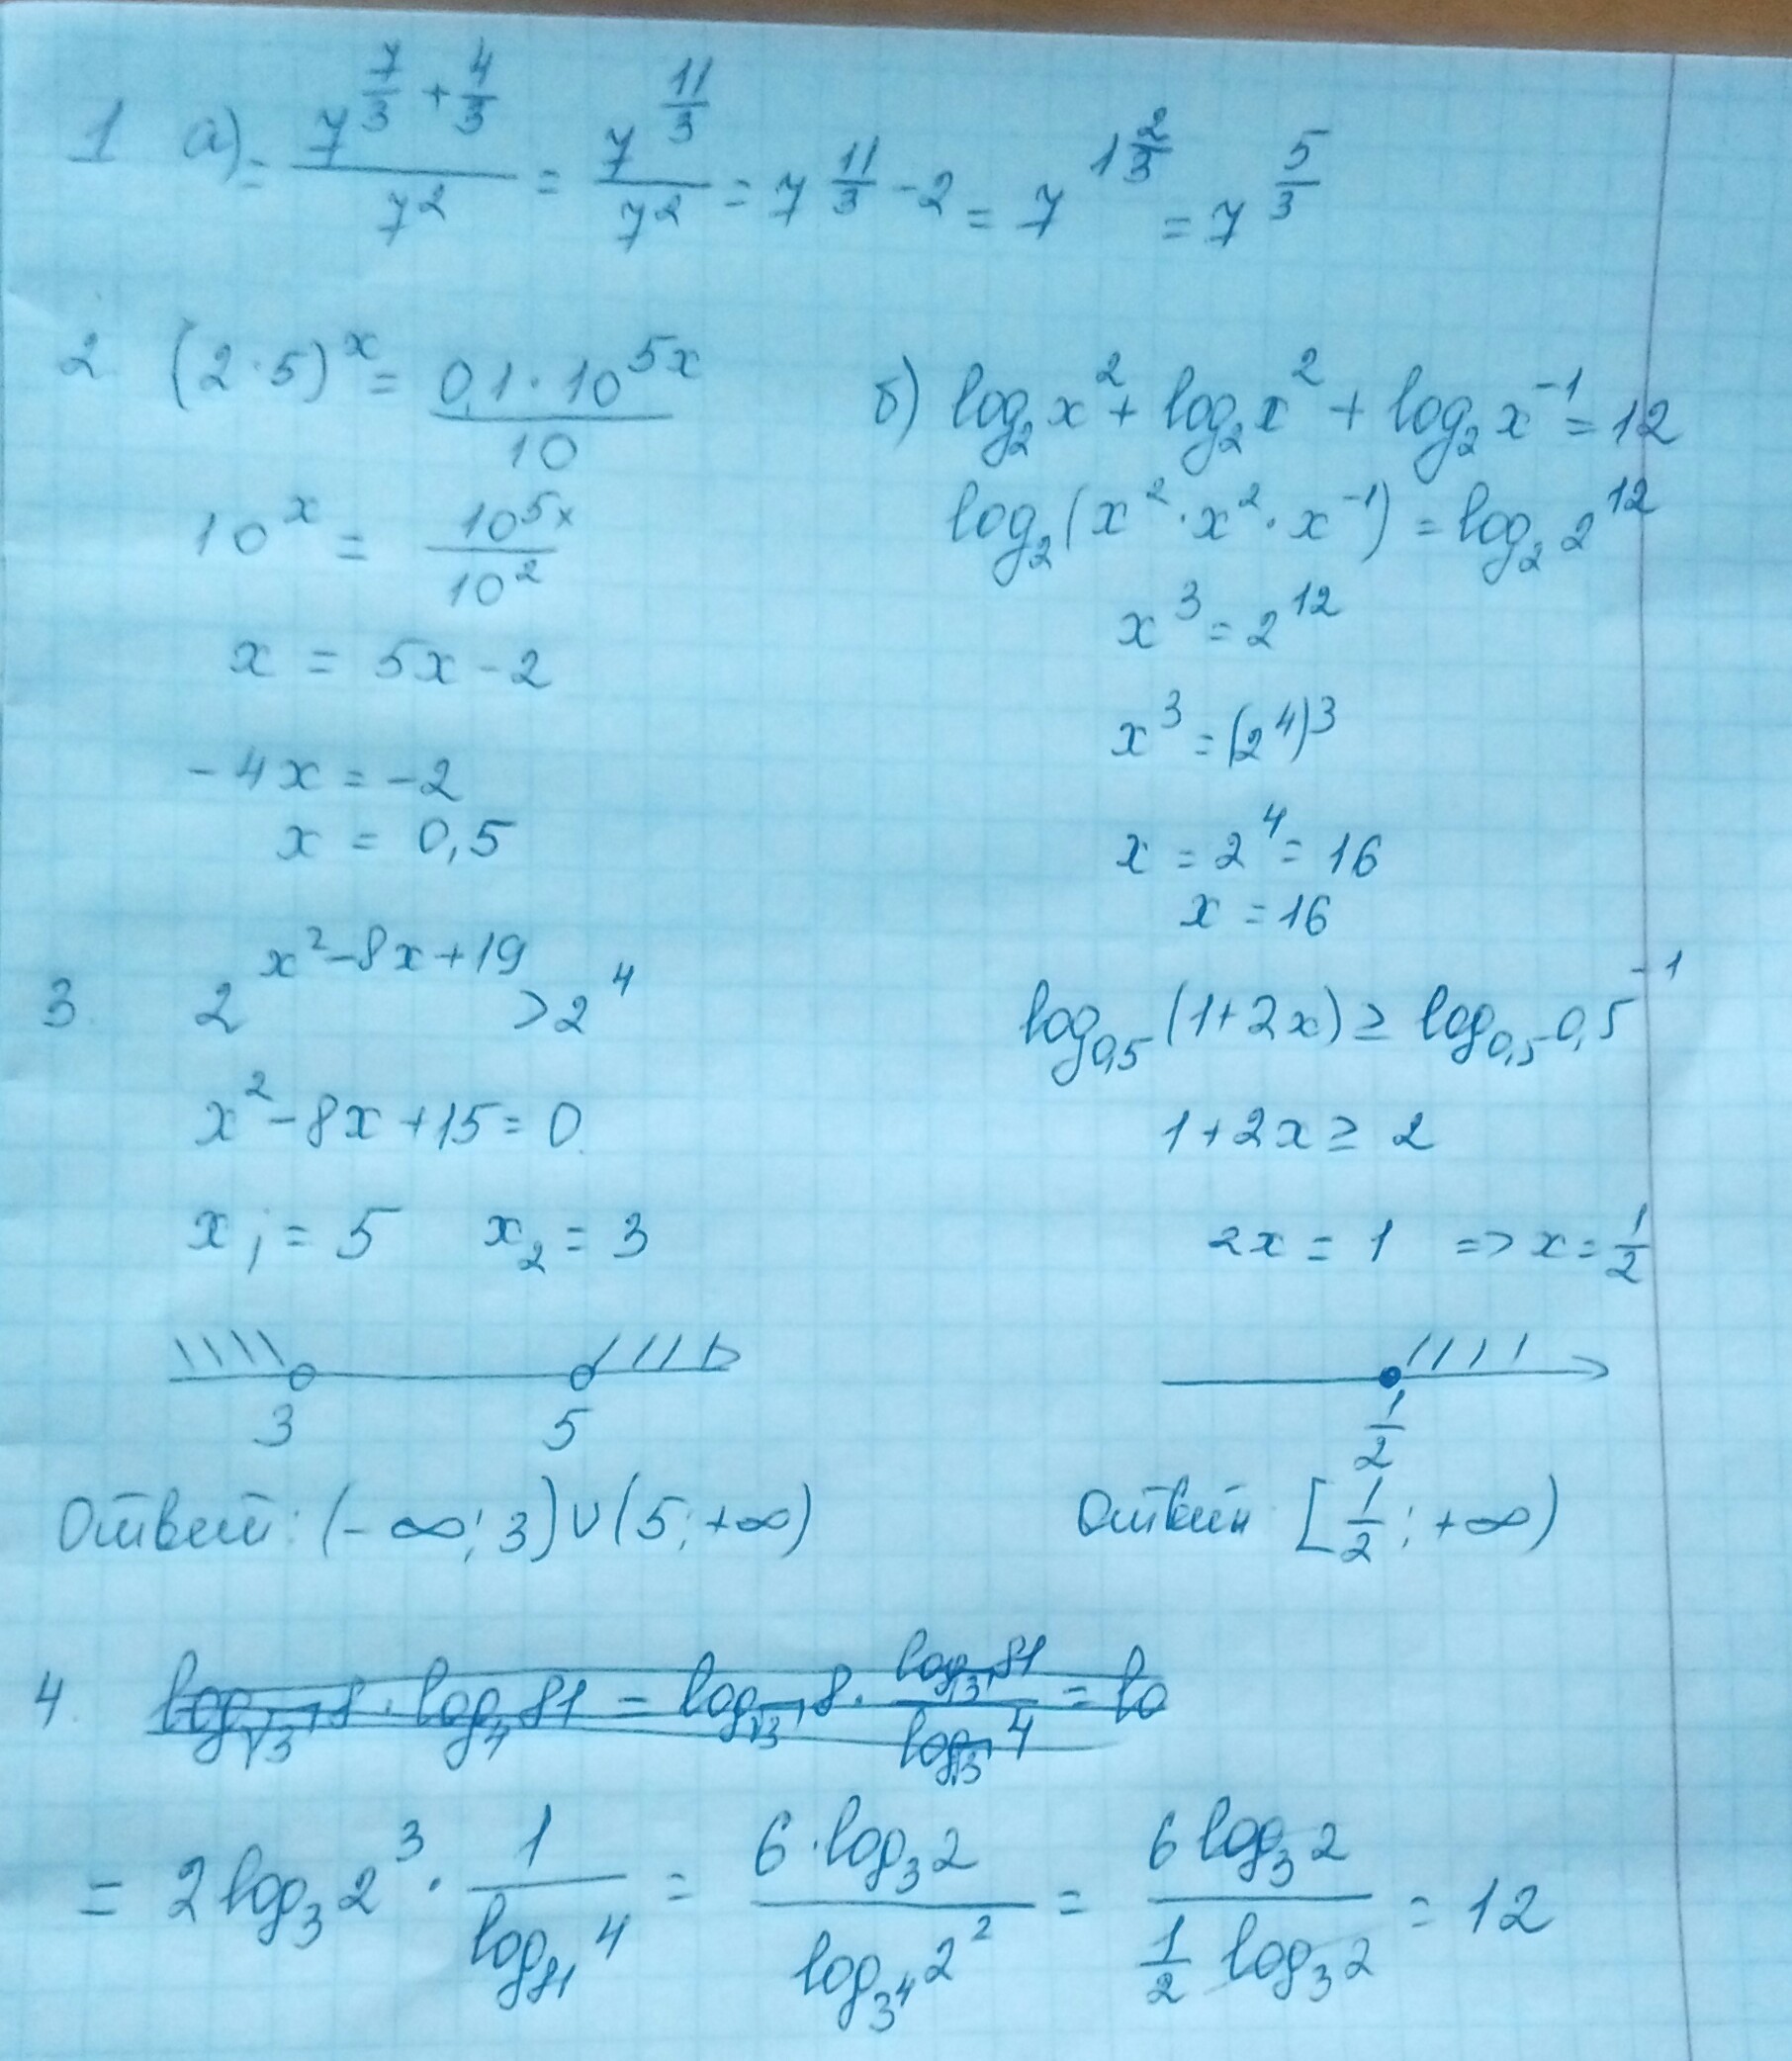 1 а) = 7^(7/3 + 4/3) / 7^2 = 7^(11/3) / 7^2 = 7^(11/3 - 2) = 7^(1 2/3) = 7^(5/3)
2. (2·5)^x = 0,1·10^(5x) / 10
10^x = 10^(5x) / 10^2
x = 5x - 2
-4x = -2
x = 0,5
б) log_2 x^2 + log_2 x^2 + log_2 x^(-1) = 12
log_2 (x^2 · x^2 · x^(-1)) = log_2 2^12
x^3 = 2^12
x^3 = (2^4)^3
x = 2^4 = 16
x = 16
3. 2^(x^2 - 8x + 19) > 2^4
x^2 - 8x + 15 = 0
x_1 = 5 x_2 = 3
3 5
Ответ: (-∞; 3) ∪ (5; +∞)
log_0,5 (1+2x) ≥ log_0,5 0,5^(-1)
1+2x ≥ 2
2x = 1 => x = 1/2
1/2
Ответ: [1/2; +∞)
4. log_√3 8 · log_4 81 = log_√3 8 · log_√3 81 / log_√3 4 = lo
= 2 log_3 2^3 · 1 / log_81 4 = 6·log_3 2 / log_3^4 2^2 = 6 log_3 2 / (1/2 log_3 2) = 12